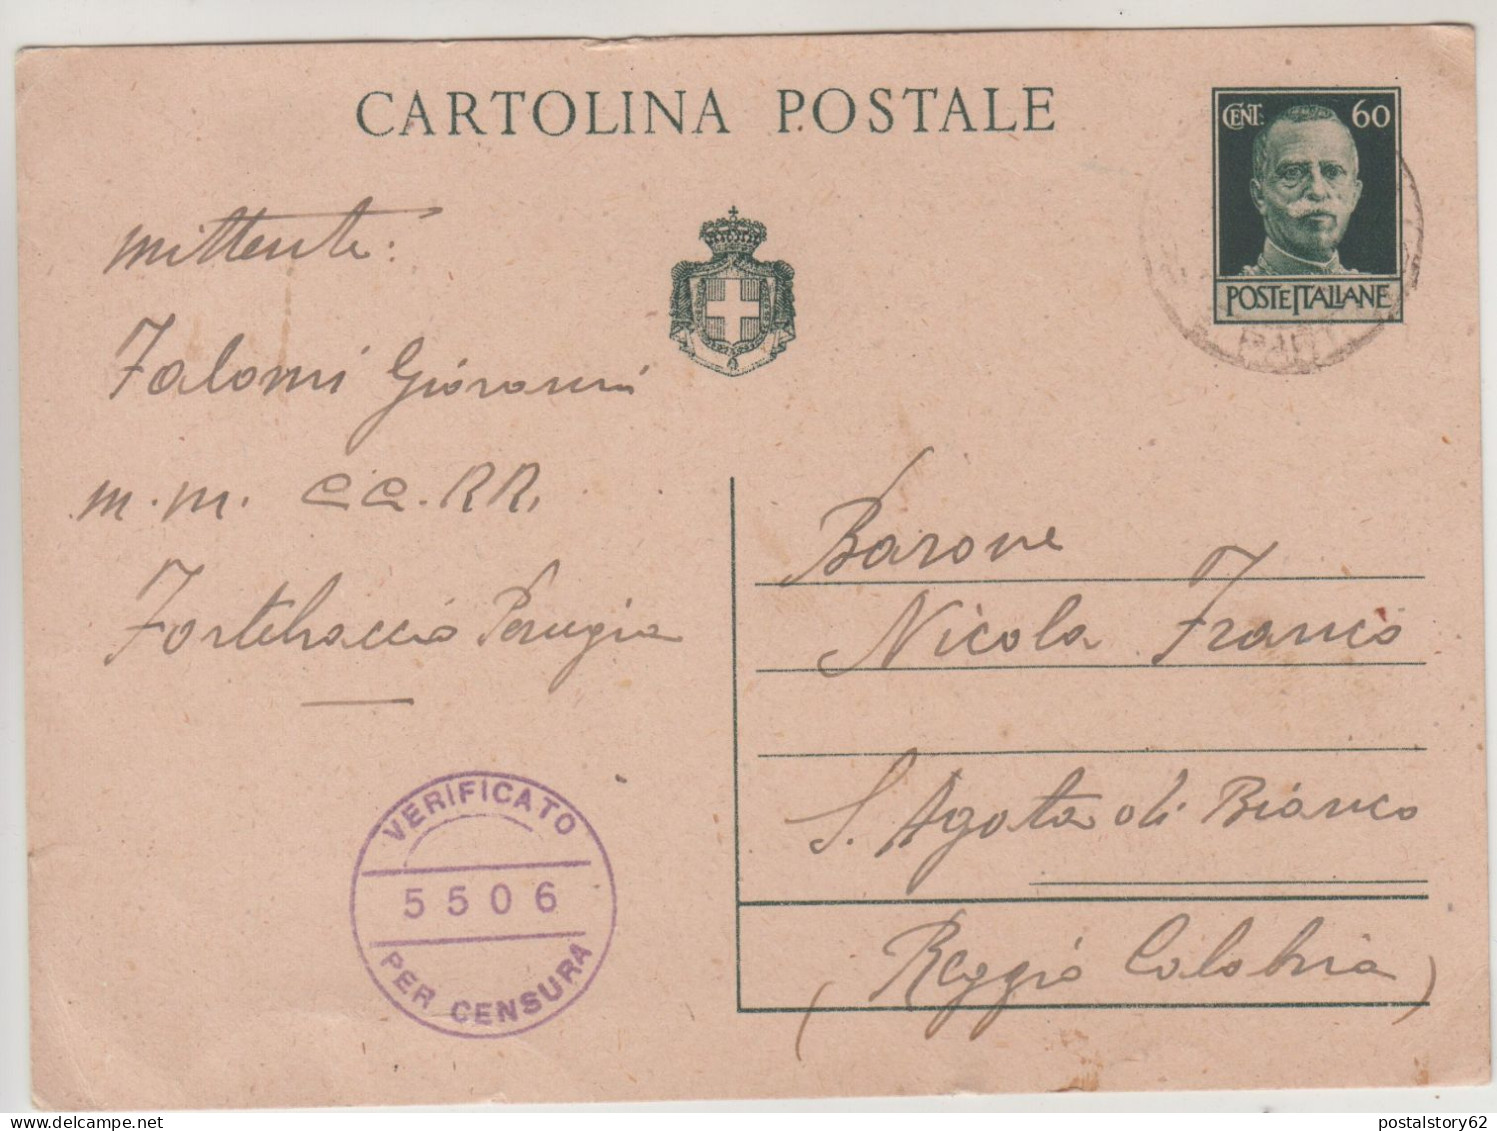 CARTOLINA POSTALE
CENT: 60
POSTE ITALIANE
mittente:
Falomi Giovanni
m. m. CC. RR.
Fortebraccio Perugia
Barone
Nicola Franco
S. Agata di Bianco
( Reggio Calabria )
VERIFICATO
5506
PER CENSURA
postalstory62